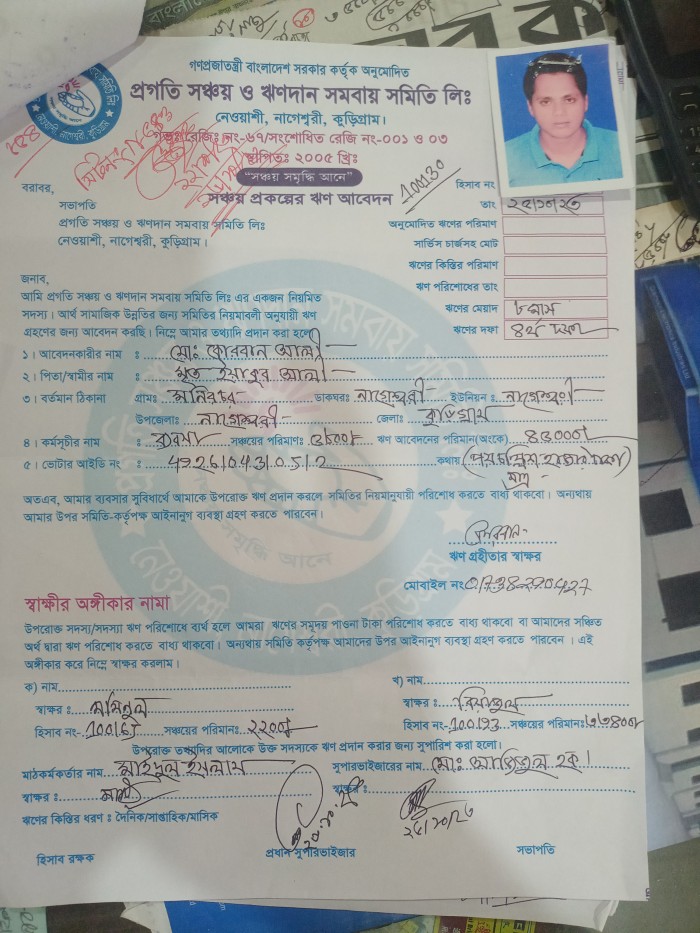 গণপ্রজাতন্ত্রী বাংলাদেশ সরকার কর্তৃক অনুমোদিত
প্রগতি সঞ্চয় ও ঋণদান সমবায় সমিতি লিঃ
নেওয়াশী, নাগেশ্বরী, কুড়িগ্রাম।
গভঃ রেজিঃ নং-৬৭/সংশোধিত রেজি নং-০০১ ও ০৩
স্থাপিতঃ ২০০৫ খ্রিঃ
"সঞ্চয় সমৃদ্ধি আনে"
সঞ্চয় প্রকল্পের ঋণ আবেদন
হিসাব নং 100130
তাং
অনুমোদিত ঋণের পরিমাণ
সার্ভিস চার্জসহ মোট
ঋণের কিস্তির পরিমাণ
ঋণ পরিশোধের তাং
ঋণের মেয়াদ ৮ মাস
ঋণের দফা ৪র্থ দফা
বরাবর,
সভাপতি
প্রগতি সঞ্চয় ও ঋণদান সমবায় সমিতি লিঃ
নেওয়াশী, নাগেশ্বরী, কুড়িগ্রাম।
জনাব,
আমি প্রগতি সঞ্চয় ও ঋণদান সমবায় সমিতি লিঃ এর একজন নিয়মিত
সদস্য। আর্থ সামাজিক উন্নতির জন্য সমিতির নিয়মাবলী অনুযায়ী ঋণ
গ্রহণের জন্য আবেদন করছি। নিম্নে আমার তথ্যাদি প্রদান করা হলো
১। আবেদনকারীর নাম : মোঃ কোরবান আলী
২। পিতা/স্বামীর নাম : মৃত ইয়াকুব আলী
৩। বর্তমান ঠিকানা গ্রামঃ মনিরচর ডাকঘরঃ নাগেশ্বরী ইউনিয়ন ঃ নাগেশ্বরী
উপজেলাঃ নাগেশ্বরী জেলাঃ কুড়িগ্রাম
৪। কর্মসূচীর নাম : ব্যবসা সঞ্চয়ের পরিমাণঃ ঋণ আবেদনের পরিমান(অংকে) ৪৫০০০/
৫। ভোটার আইডি নং : 4926104310512 কথায় (পয়তাল্লিশ হাজার টাকা) মাত্র
অতএব, আমার ব্যবসার সুবিধার্থে আমাকে উপরোক্ত ঋণ প্রদান করলে সমিতির নিয়মানুযায়ী পরিশোধ করতে বাধ্য থাকবো। অন্যথায়
আমার উপর সমিতি-কর্তৃপক্ষ আইনানুগ ব্যবস্থা গ্রহণ করতে পারবেন।
কোরবান
ঋণ গ্রহীতার স্বাক্ষর
মোবাইল নং 01738220427
স্বাক্ষীর অঙ্গীকার নামা
উপরোক্ত সদস্য/সদস্যা ঋণ পরিশোধে ব্যর্থ হলে আমরা ঋণের সমুদয় পাওনা টাকা পরিশোধ করতে বাধ্য থাকবো বা আমাদের সঞ্চিত
অর্থ দ্বারা ঋণ পরিশোধ করতে বাধ্য থাকবো। অন্যথায় সমিতি কর্তৃপক্ষ আমাদের উপর আইনানুগ ব্যবস্থা গ্রহণ করতে পারবেন । এই
অঙ্গীকার করে নিম্নে স্বাক্ষর করলাম।
ক) নাম খ) নাম
স্বাক্ষর ঃ মমিনুল স্বাক্ষর ঃ
হিসাব নং- সঞ্চয়ের পরিমানঃ ২২০০/ হিসাব নং- 100193 সঞ্চয়ের পরিমানঃ
উপরোক্ত তথ্যাদির আলোকে উক্ত সদস্যকে ঋণ প্রদান করার জন্য সুপারিশ করা হলো।
মাঠকর্মকর্তার নাম মাইদুল ইসলাম সুপারভাইজারের নাম মোঃ আজিজুল হক।
স্বাক্ষর ঃ স্বাক্ষর ঃ
ঋণের কিস্তির ধরণ ঃ দৈনিক/সাপ্তাহিক/মাসিক
হিসাব রক্ষক প্রধান সুপারভাইজার সভাপতি